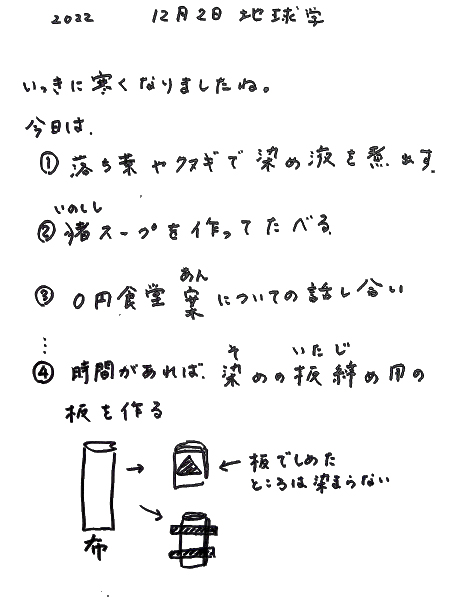 2022　12月2日 地球学
いっきに寒くなりましたね。
今日は、
① 落ち葉やクヌギで染め液を煮出す。
いのしし
② 猪スープを作ってたべる
あん
③ 0円食堂 案についての話し合い
⋮
そ　いたじ
④ 時間があれば、染めの板締め用の
板を作る
← 板でしめた
ところは染まらない
布